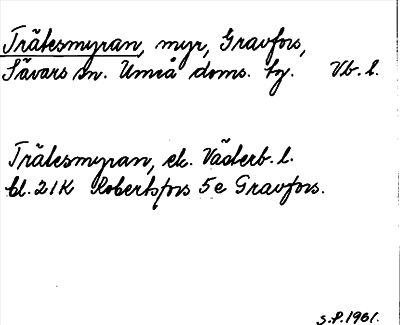 Trätesmyran, myr, Gravfors,
Sävars sn. Umeå doms. tg. Vb. l.
Trätesmyran, ek. Västerb. l.
bl. 21K Robertsfors 5e Gravfors.
S.P. 1961.